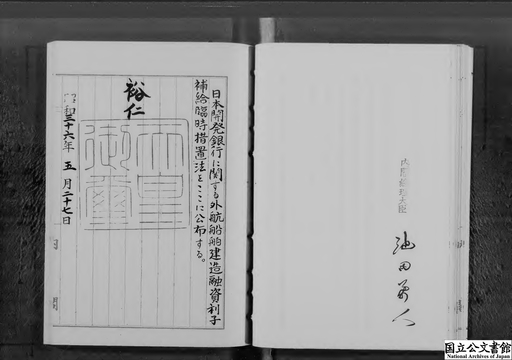 日本開発銀行に関する外航船舶建造融資利子
補給臨時措置法をここに公布する。
裕仁
天皇
御璽
昭和三十六年五月二十七日
内閣総理大臣
池田勇人
国立公文書館
National Archives of Japan